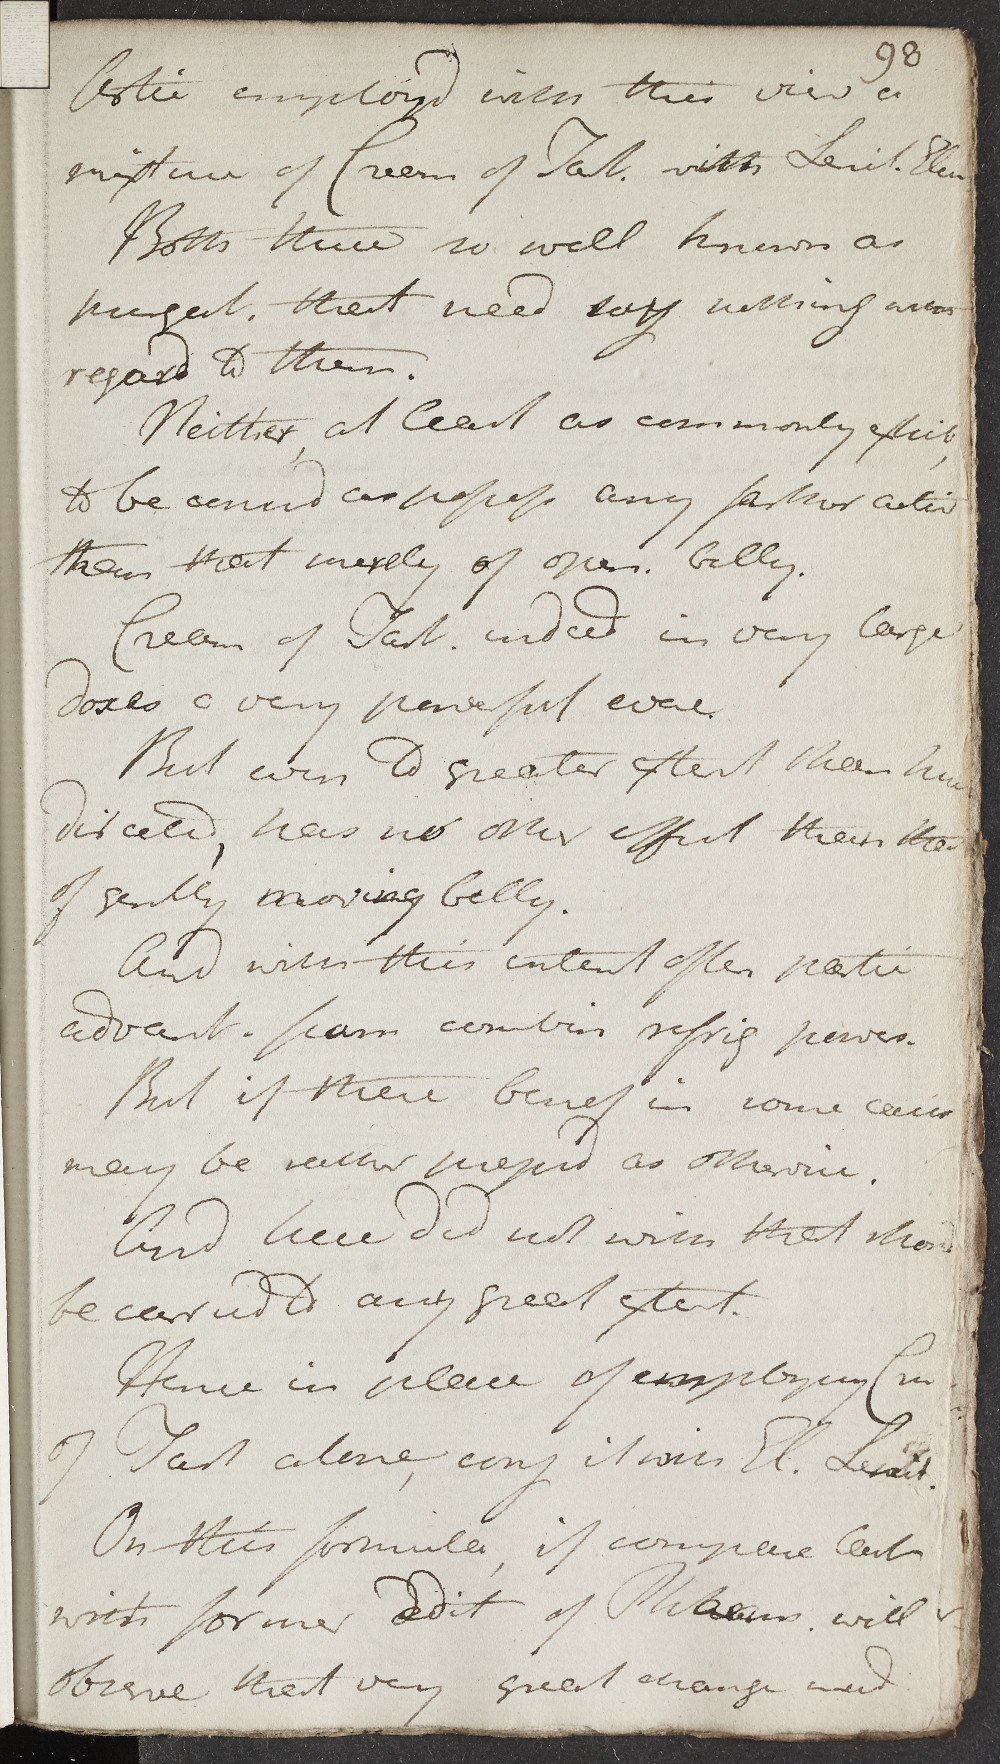 98
Artic employd with this view a
mixture of Cream of Tart. with Lenit. Elec
Both these so well known as
purgat. that need say nothing with
regard to them.
Neither, at least as commonly exhib,
to be considd as possess any farther action
than that merely of open. belly.
Cream of Tart. indeed in very large
doses a very powerful evac.
But even to greater extent than here
directed, has no other effect than that
of gently moving belly.
And with this intent often partic
advant. from combin refrig power.
But if there benef in some cases
may be rather prejud as otherwise.
And here did not wish that should
be carried to any great extent.
Hence in place of employing Crm
of Tart alone, conj it with El. Lenit.
On this formula, if compare last
with former Edit of Pharm. will
observe that very great change made